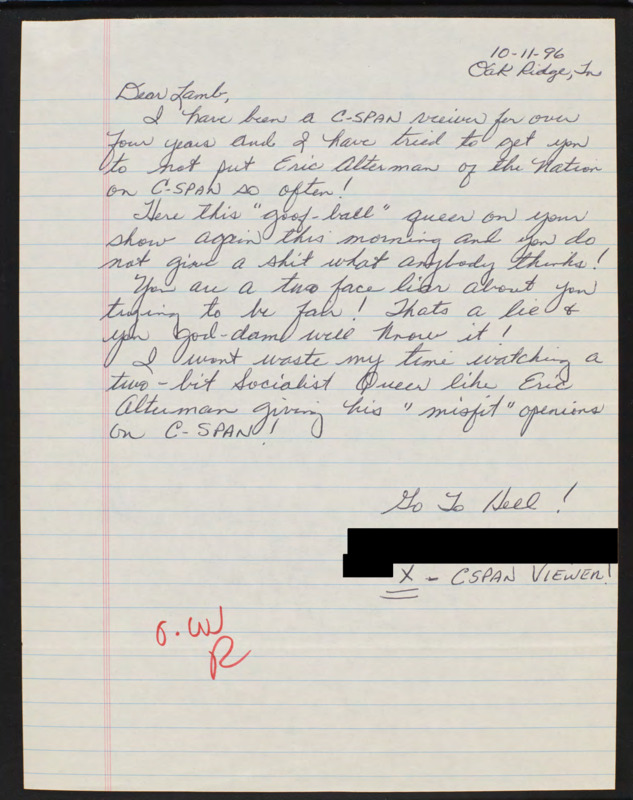 10-11-96
Oak Ridge, Tn
Dear Lamb,
I have been a C-SPAN viewer for over
four years and I have tried to get you
to not put Eric Alterman of the Nation
on C-SPAN so often!
Here this "goof-ball" queer on your
show again this morning and you do
not give a shit what anybody thinks!
You are a two face liar about you
trying to be fair! Thats a lie &
you god-dam well know it!
I wont waste my time watching a
two-bit Socialist Queer like Eric
Alterman giving his "misfit" openions
on C-SPAN!
Go To Hell!
X - CSPAN VIEWER!